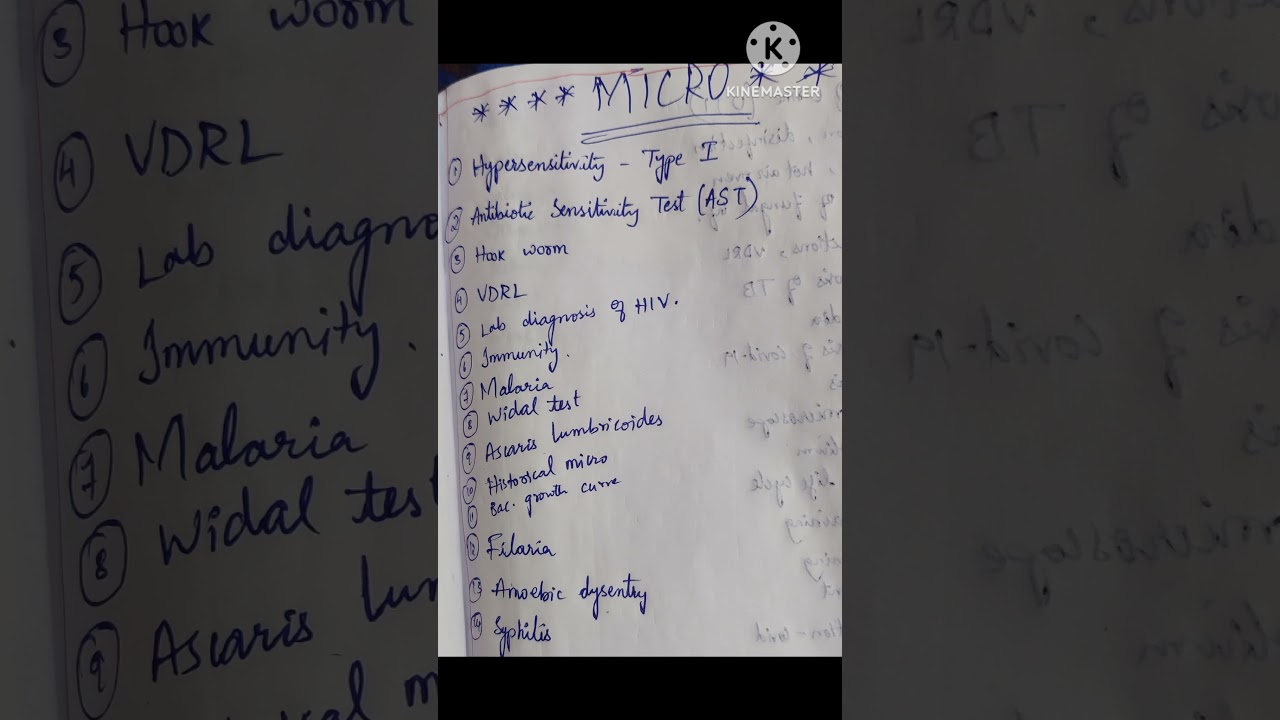 KINEMASTER
**** MICRO **
① Hypersensitivity - Type I
② Antibiotic Sensitivity Test (AST)
③ Hook worm
④ VDRL
⑤ Lab diagnosis of HIV.
⑥ Immunity.
⑦ Malaria
⑧ Widal test
⑨ Ascaris lumbricoides
⑩ Historical micro
⑪ Bac. growth curve
⑫ Filaria
⑬ Amoebic dysentry
⑭ Syphilis